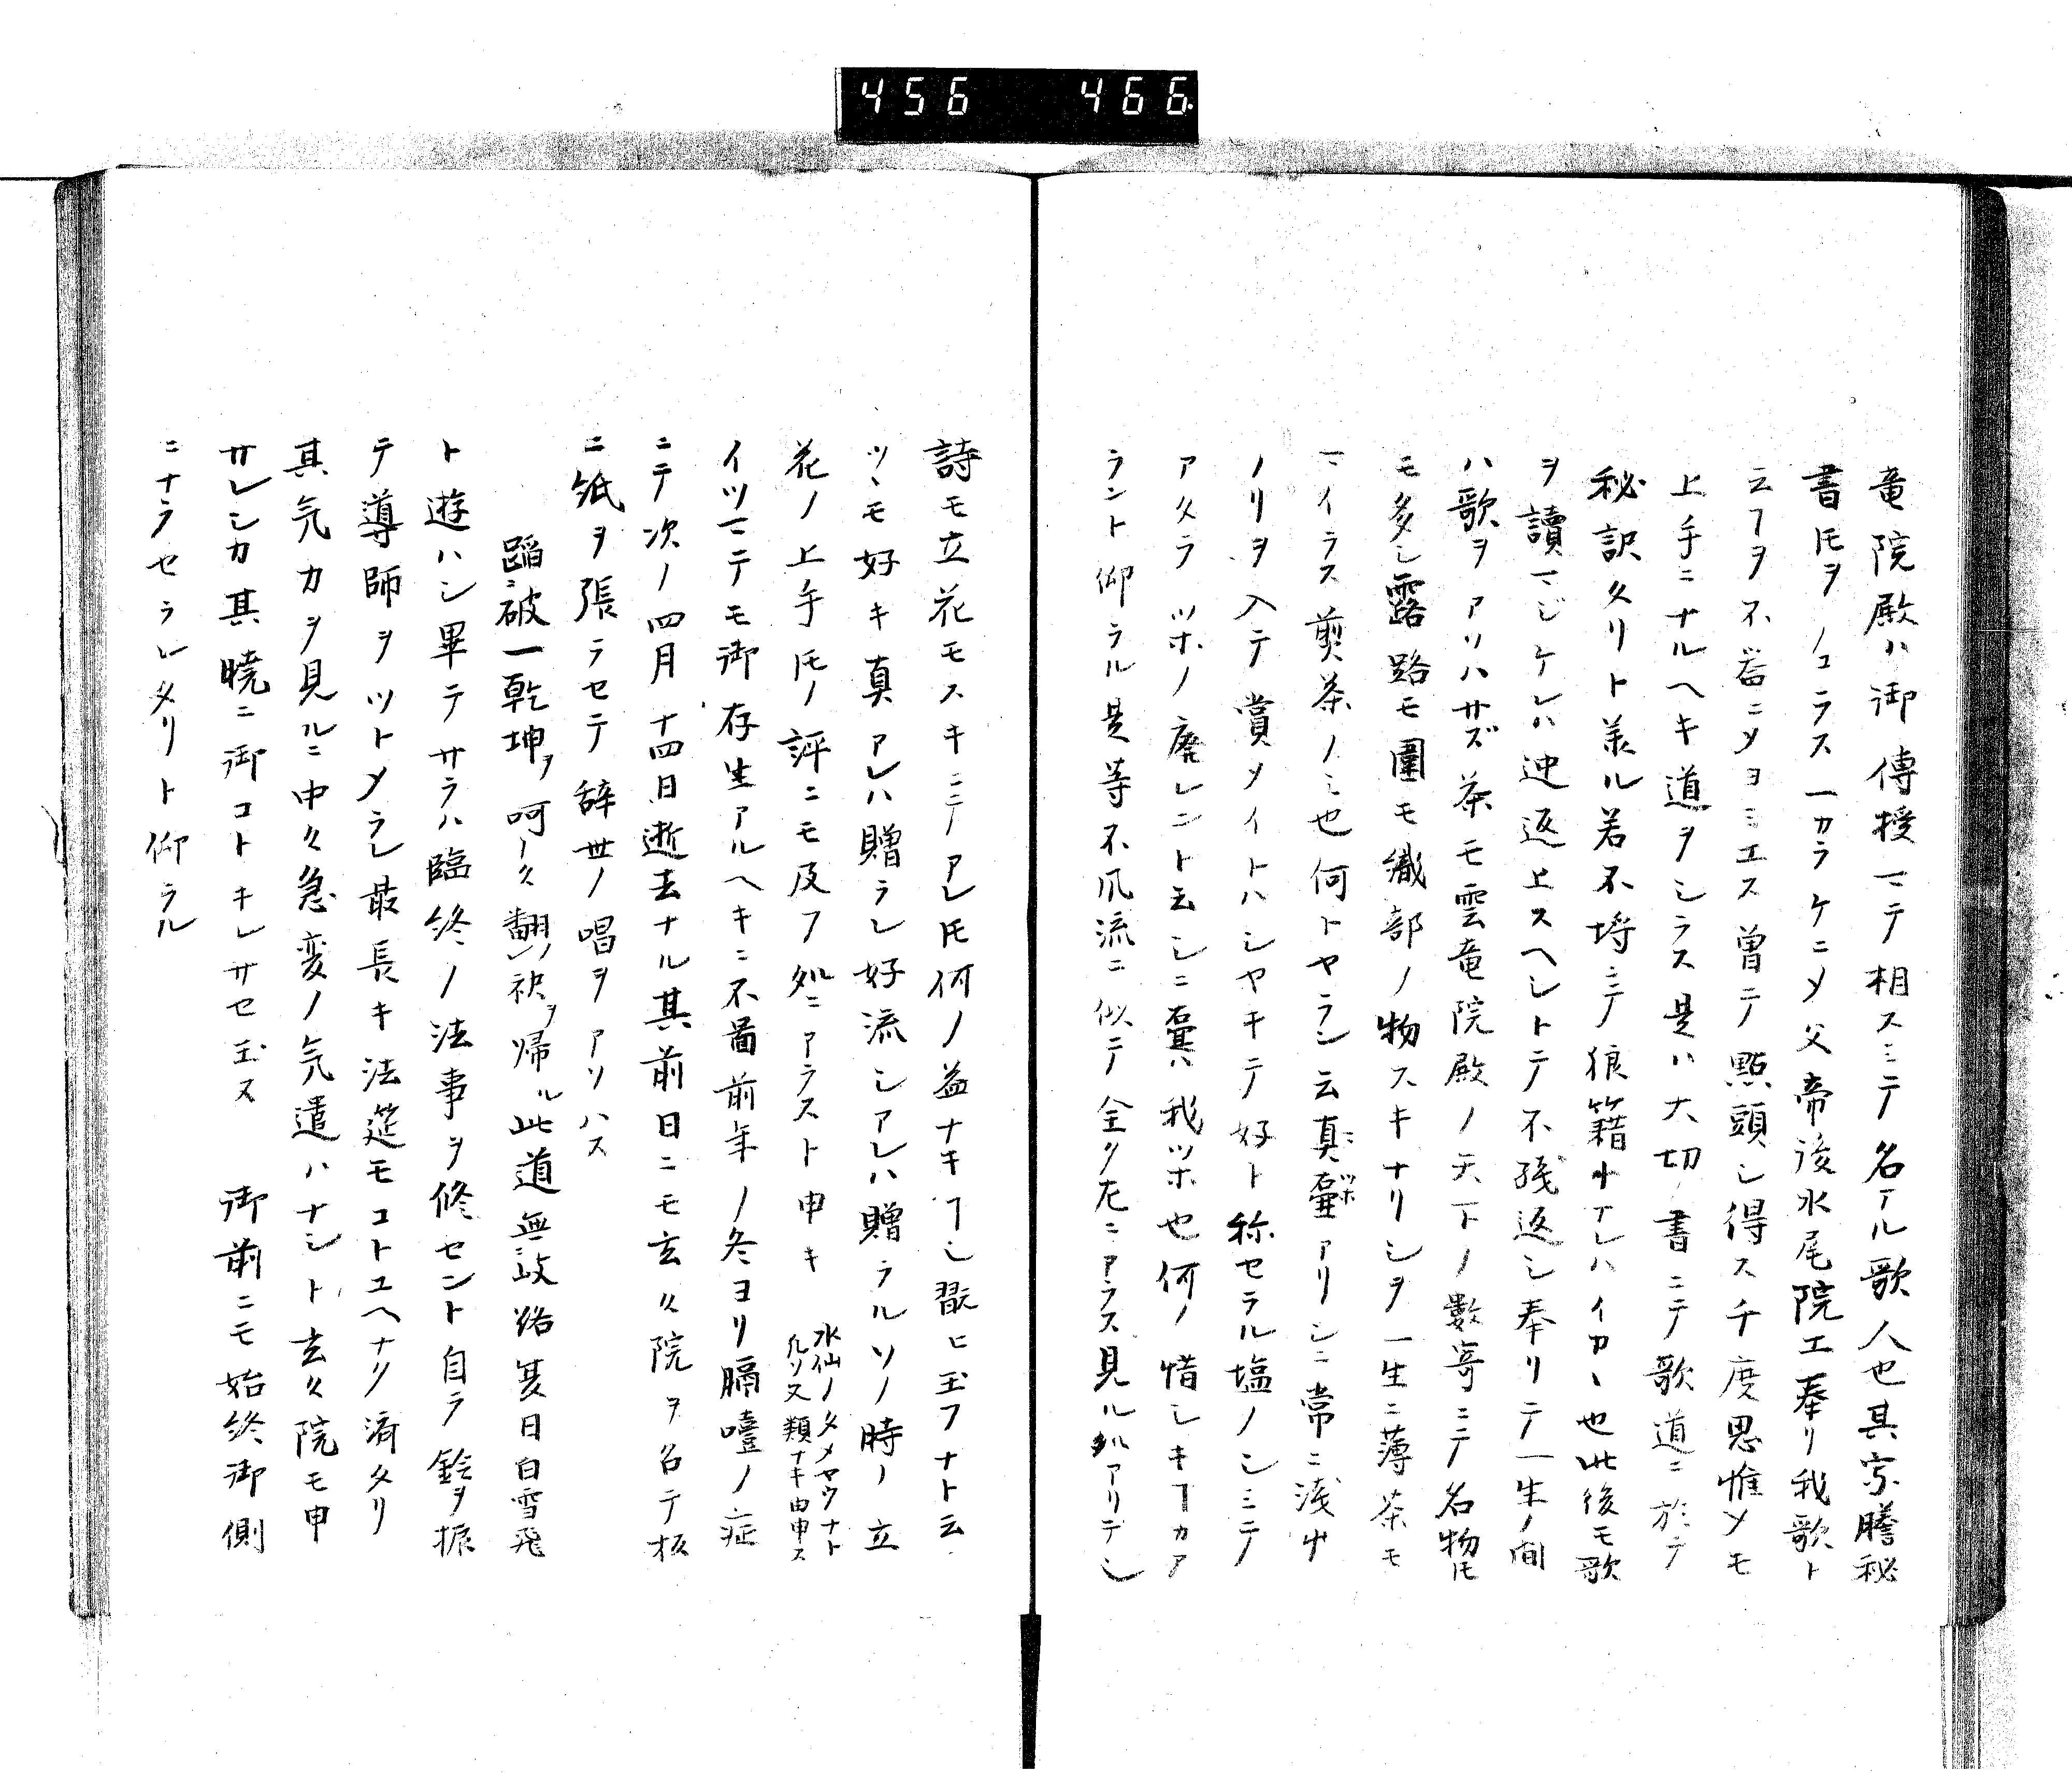 456 466
竜院殿ハ御傳授マテ相スミテ名アル歌人也其家謄秘
書𪜈ヲノコラス一カラケニ〆父帝後水尾院エ奉リ我歌ト
云ヿヲ不器ニ〆ヨミエス曽テ點頭シ得ス千度思惟〆モ
上手ニナルヘキ道ヲシラス是ハ大切ノ書ニテ歌道ニ於テ
秘訳タリト承ル若不埒ニテ狼籍ナトアレハイカヽ也此後モ歌
ヲ讀マジケレハ迚返上スヘシトテ不残返シ奉リテ一生ノ間
ハ歌ヲアソハサズ茶モ雲竜院殿ノ天下ノ數寄ニテ名物𪜈
モ多シ露路モ圍モ織部ノ物スキナリシヲ一生ニ薄茶モ
マイラス煎茶ノミ也何トヤラン云真壷アリシニ常ニ淺草
ノリヲ入テ賞メイトハシヤキテ好ト称セラル塩ノシミテ
アタラツホノ廃レント云シニ嚢ハ我ツホ也何ノ惜シキヿカア
ラント仰ラル是等不風流ニ似テ全ク左ニアラス見ル処アリテシ
詩モ立花モスキニテアレ𪜈何ノ益ナキヿト翫ヒ玉フナト云
ツヽモ好キ真アレハ贈ラレ好流シアレハ贈ラルソノ時ノ立
花ノ上手𪜈ノ評ニモ及フ処ニアラスト申キ 水仙ノタメヤウナト
凡ソ又類ナキ由申ス
イツマテモ御存生アルヘキニ不啚前年ノ冬ヨリ膈噎ノ症
ニテ次ノ四月十四日逝去ナル其前日ニモ玄久院ヲ召テ板
ニ紙ヲ張ラセテ辞世ノ唱ヲアソハス
蹈破一乾坤ヲ呵々翻ノ袂ヲ帰ル此道無岐路夏日白雪飛
ト遊ハシ畢テサラハ臨終ノ法事ヲ修セント自ラ鈴ヲ振
テ導師ヲツトメラレ最長キ法莚モコトユヘナク済タリ
其気カヲ見ルニ中々急変ノ気遣ハナシト玄久院モ申
サレシカ其暁ニ御コトキレサセ玉ス 御前ニモ始終御側
ニナラセラレタリト仰ラル